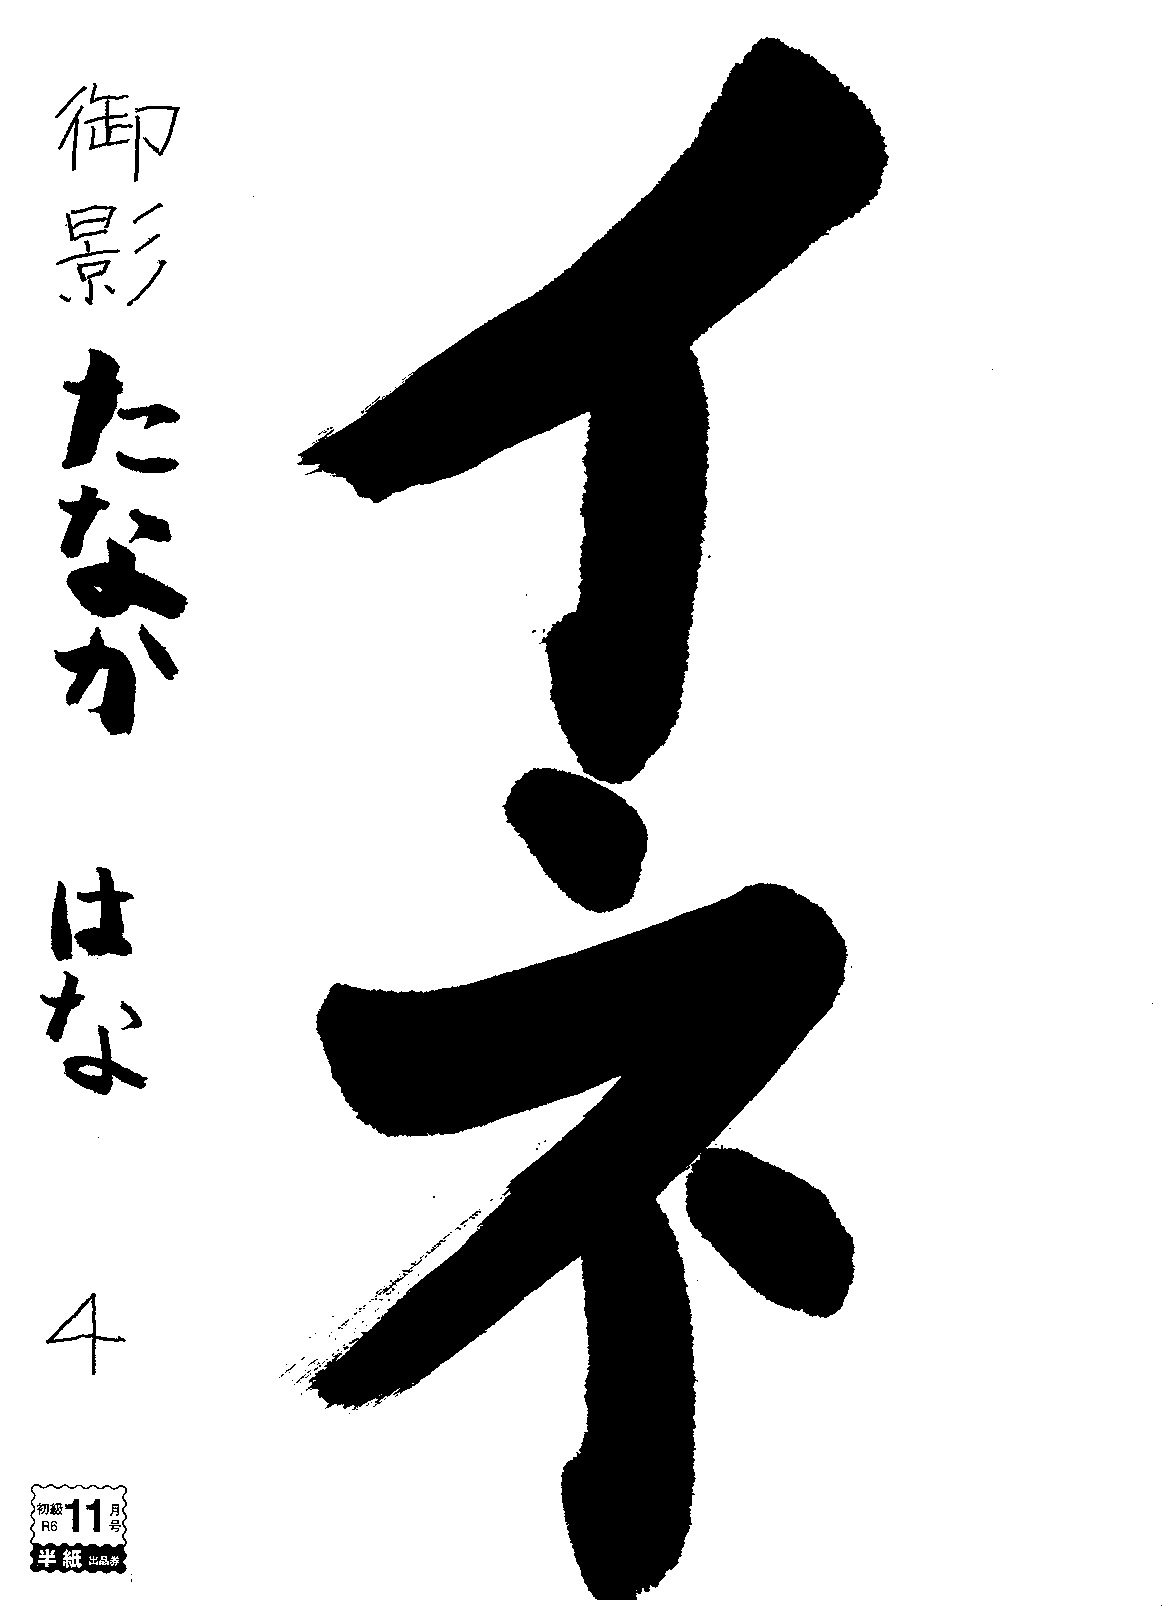 イネ
御影 たなか はな 4
初級 11 月
R6 号
半紙 出品券